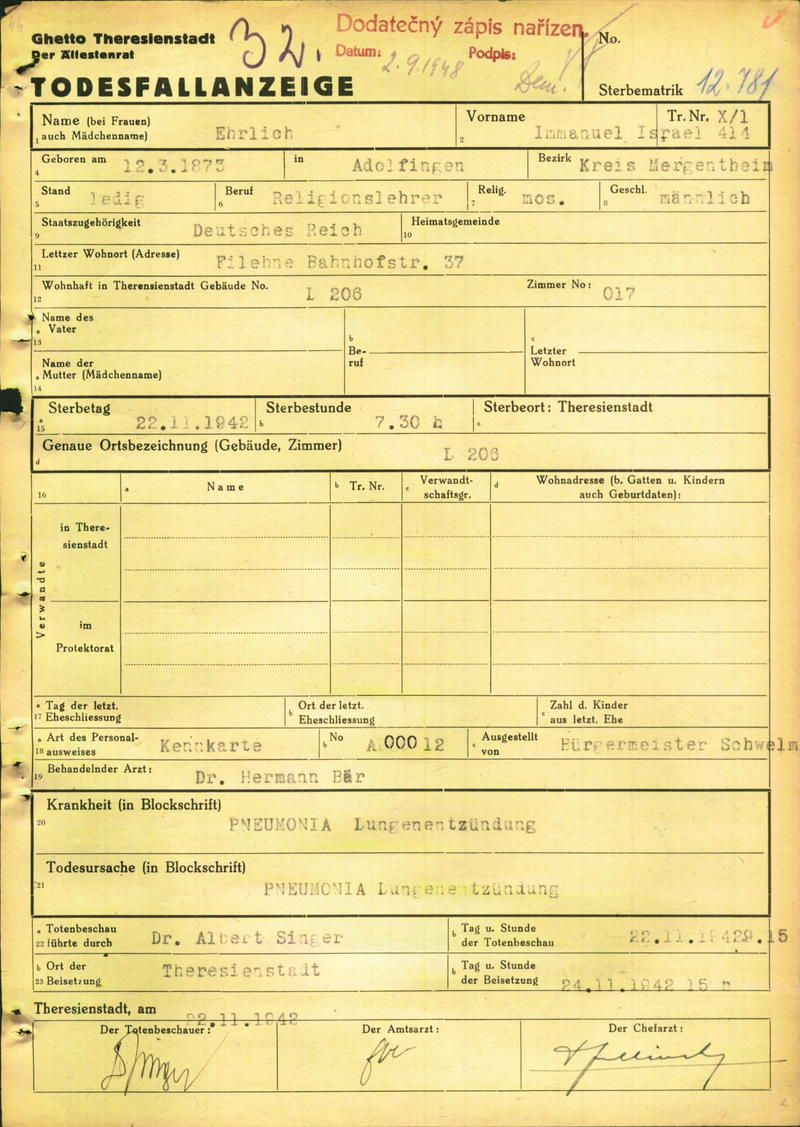 Ghetto Theresienstadt
Der Ältestenrat
32.
Dodatečný zápis nařízen.
Datum: 2.9.1948 Podpis:
No.
TODESFALLANZEIGE
Sterbematrik 12.781
Name (bei Frauen)
1 auch Mädchenname) Ehrlich
Vorname
2 Immanuel Israel
Tr. Nr. X/1
414
4 Geboren am 12.3.1873 in Adolfingen Bezirk Kreis Mergentheim
5 Stand ledig 6 Beruf Religionslehrer 7 Relig. mos. 8 Geschl. männlich
9 Staatszugehörigkeit Deutsches Reich 10 Heimatsgemeinde
11 Lettzer Wohnort (Adresse) Filehne Bahnhofstr. 37
12 Wohnhaft in Therensienstadt Gebäude No. L 206 Zimmer No: 017
13 a Name des Vater
14 a Name der Mutter (Mädchenname)
b Be-ruf
c Letzter Wohnort
a 15 Sterbetag 22.11.1942 b Sterbestunde 7.30 h c Sterbeort: Theresienstadt
d Genaue Ortsbezeichnung (Gebäude, Zimmer) L 206
16 a Name b Tr. Nr. c Verwandt-schaftsgr. d Wohnadresse (b. Gatten u. Kindern auch Geburtdaten):
Verwandte
in There-
sienstadt
im
Protektorat
17 a Tag der letzt. Eheschliessung b Ort der letzt. Eheschliessung c Zahl d. Kinder aus letzt. Ehe
18 a Art des Personal-ausweises Kennkarte b No A 00012 c Ausgestellt von Bürgermeister Schwelm
19 Behandelnder Arzt: Dr. Hermann Bär
Krankheit (in Blockschrift)
20 PNEUMONIA Lungenentzündung
Todesursache (in Blockschrift)
21 PNEUMONIA Lungenentzündung
22 a Totenbeschau führte durch Dr. Albert Singer b Tag u. Stunde der Totenbeschau 22.11.1942 9.15
23 b Ort der Beisetzung Theresienstadt b Tag u. Stunde der Beisetzung 24.11.1942 15 h
Theresienstadt, am 22.11.1942
Der Totenbeschauer: Der Amtsarzt: Der Chefarzt: